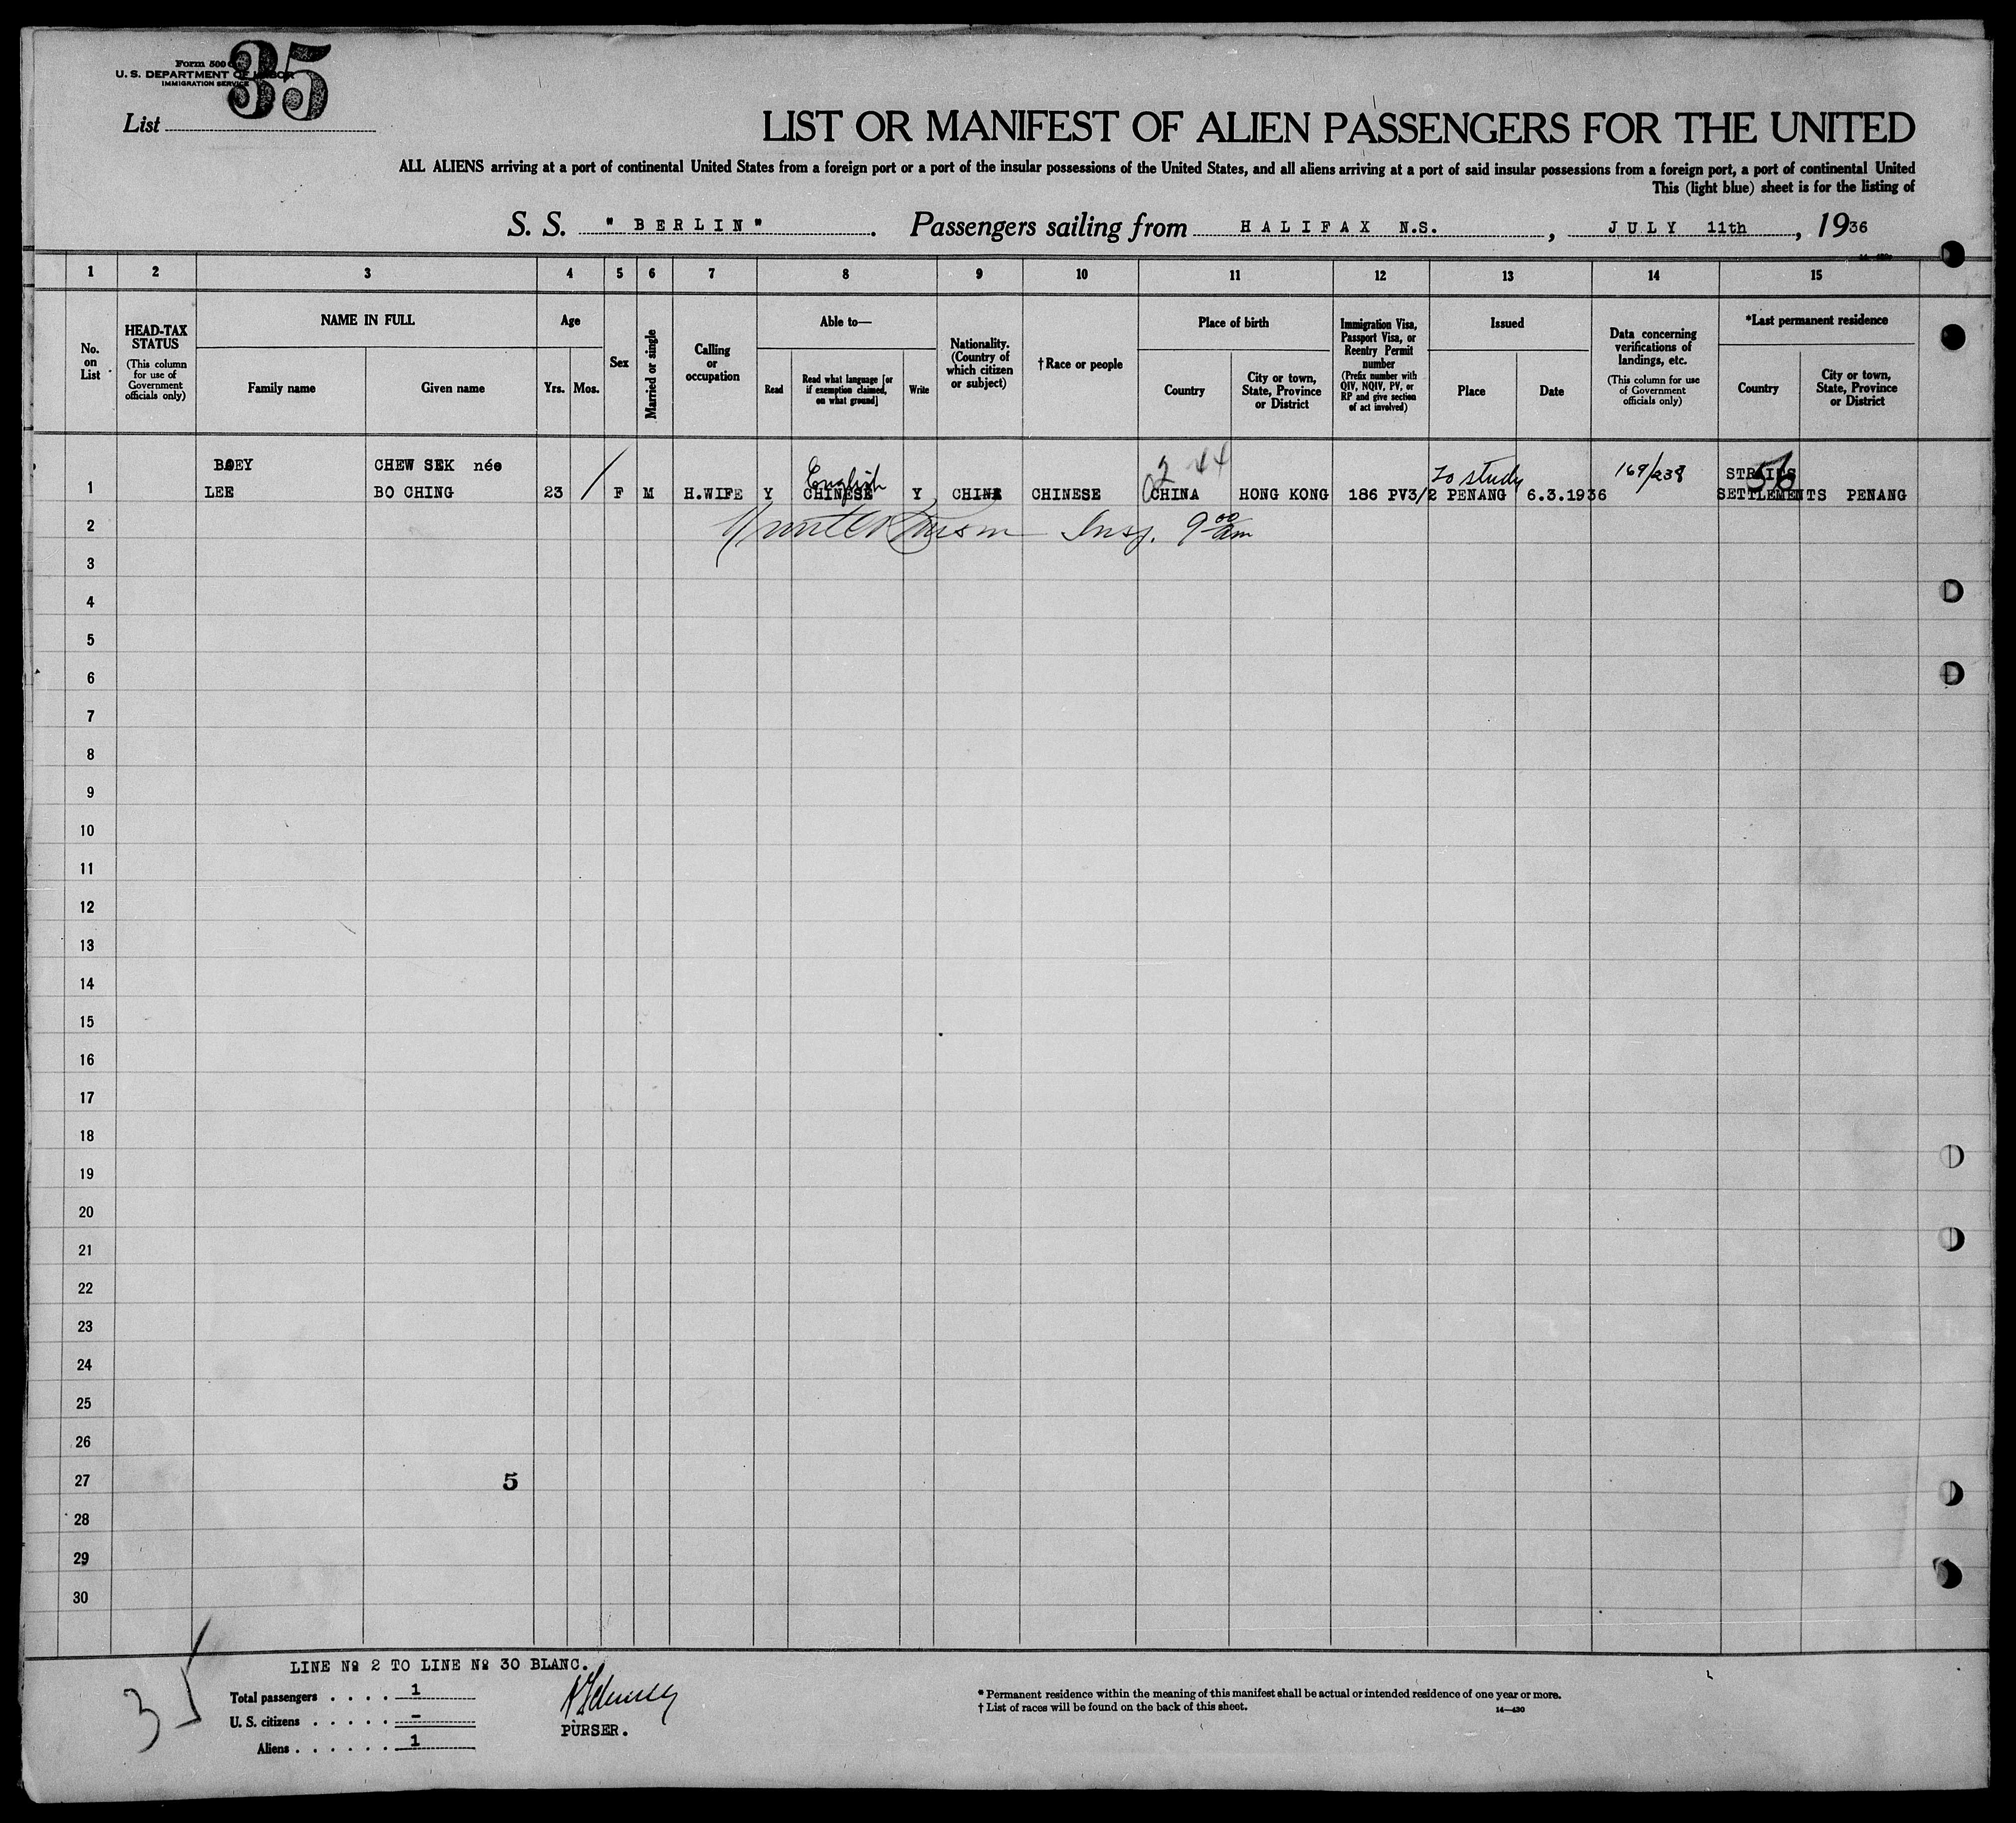 Form 500
U. S. DEPARTMENT OF LABOR
IMMIGRATION SERVICE
35
List
LIST OR MANIFEST OF ALIEN PASSENGERS FOR THE UNITED
ALL ALIENS arriving at a port of continental United States from a foreign port or a port of the insular possessions of the United States, and all aliens arriving at a port of said insular possessions from a foreign port, a port of continental United
This (light blue) sheet is for the listing of
S. S. "BERLIN". Passengers sailing from HALIFAX N.S., JULY 11th, 1936
1 2 3 4 5 6 7 8 9 10 11 12 13 14 15
No. on List
HEAD-TAX STATUS
(This column for use of Government officials only)
NAME IN FULL
Family name Given name
Age
Yrs. Mos.
Sex
Married or single
Calling or occupation
Able to—
Read
Read what language [or if exemption claimed, on what ground]
Write
Nationality. (Country of which citizen or subject)
†Race or people
Place of birth
Country
City or town, State, Province or District
Immigration Visa, Passport Visa, or Reentry Permit number
(Prefix number with QIV, NQIV, PV, or RP and give section of act involved)
Issued
Place Date
Data concerning verifications of landings, etc.
(This column for use of Government officials only)
*Last permanent residence
Country
City or town, State, Province or District
BOEY CHEW SEK née English 2 44 To study 169/238 STRAITS 56
1 LEE BO CHING 23 F M H.WIFE Y CHINESE Y CHINA CHINESE CHINA HONG KONG 186 PV3/2 PENANG 6.3.1936 SETTLEMENTS PENANG
2 Insp. 9 00 am
3
4
5
6
7
8
9
10
11
12
13
14
15
16
17
18
19
20
21
22
23
24
25
26
27 5
28
29
30
LINE No 2 TO LINE No 30 BLANC.
3
Total passengers . . . . 1
U. S. citizens . . . . . –
Aliens . . . . . . 1
PURSER.
* Permanent residence within the meaning of this manifest shall be actual or intended residence of one year or more.
† List of races will be found on the back of this sheet.
14—430